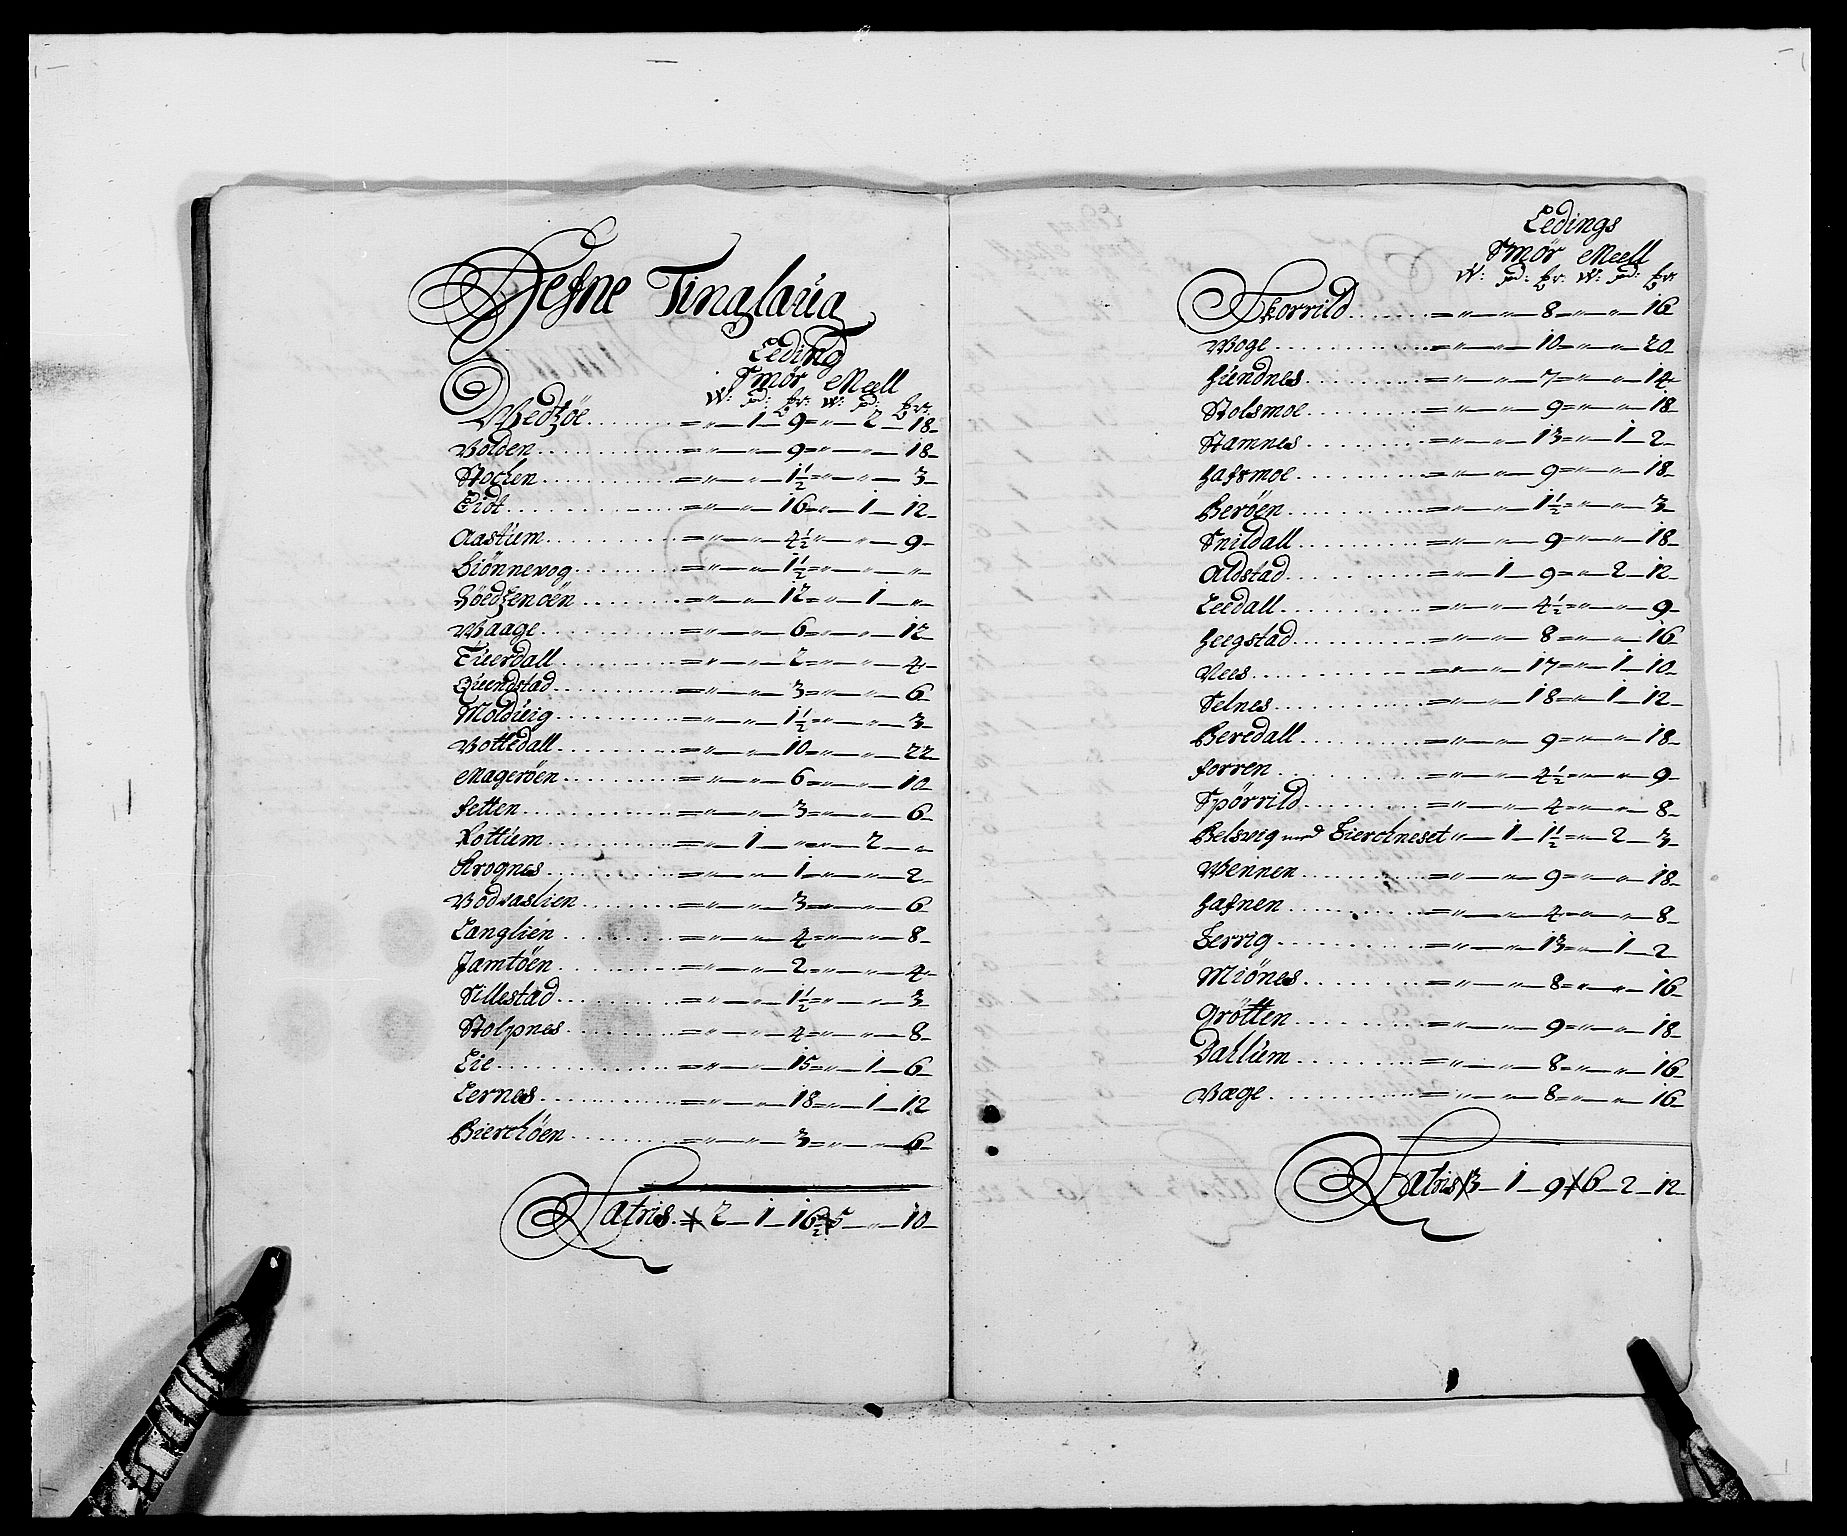 Hefne Tinglaug
Leding
Smör Meell
W: pd: ßr: W: pd: ßr:
Wedzöe = „ 1 9 = „ 2 18
Volden = „ „ 9 = „ „ 18
Stochen = „ „ 1½ = „ „ 3
Eidt = „ „ 16 = „ 1 12
Aastum = „ „ 4½ „ „ 9
Hiönnevog = „ „ 1½ = „ „ „
Zöedzenöen = „ „ 12 = „ 1 „
Waage = „ „ 6 = „ „ 12
Tuerdall = „ „ 2 = „ „ 4
Quendstad = „ „ 3 = „ „ 6
Molduig = „ „ 1½ = „ „ 3
Vottedall = „ „ 10 = „ „ 22
Mageröen = „ „ 6 = „ „ 10
fetten = „ „ 3 = „ „ 6
Kottum = „ 1 „ „ 2 „
Krognes = „ „ 1 „ „ 2
Vodvaslien = „ „ 3 = „ „ 6
Langlien = „ „ 4 = „ „ 8
Jamtöen = „ „ 2 = „ „ 4
Sillestad = „ „ 1½ = „ „ 3
Stolpnes = „ „ 4 = „ „ 8
Lie = „ „ 15 = „ 1 6
Lernes = „ „ 18 = „ 1 12
Bierchöen = „ „ 3 = „ „ 6
Latris 2 1 16½ 5 „ 10
Ledings
Smör Meell
W: pd: ßr: W: pd: ßr:
Skorrild = „ „ 8 = „ „ 16
Woge = „ „ 10 = „ „ 20
Hundnes = „ „ 7 = „ „ 14
Stolsmoe = „ „ 9 = „ „ 18
Stamnes = „ „ 13 = „ 1 2
Hafsmoe = „ „ 9 = „ „ 18
Beröen = „ „ 1½ = „ „ 3
Snildall = „ „ 9 = „ „ 18
Aldstad = „ 1 9 = „ 2 12
Leedall = „ „ 4½ = „ „ 9
Heegstad = „ „ 8 = „ „ 16
Nees = „ „ 17 = „ 1 10
Selnes = „ „ 18 = „ 1 12
Beredall = „ „ 9 = „ „ 18
forren = „ „ 4½ = „ „ 9
Spörrild = „ „ 4 = „ „ 8
Belsvig med Zierchneset „ 1 1½ = „ 2 3
Wennen = „ „ 9 = „ „ 18
Hafnen = „ „ 4 = „ „ 8
Zerrig = „ „ 13 = „ 1 2
Miönes = „ „ 8 = „ „ 16
Grötten = „ „ 9 = „ „ 18
Dallum = „ „ 8 = „ „ 16
Væge = „ „ 8 = „ „ 16
Latris 3 1 9 6 2 12